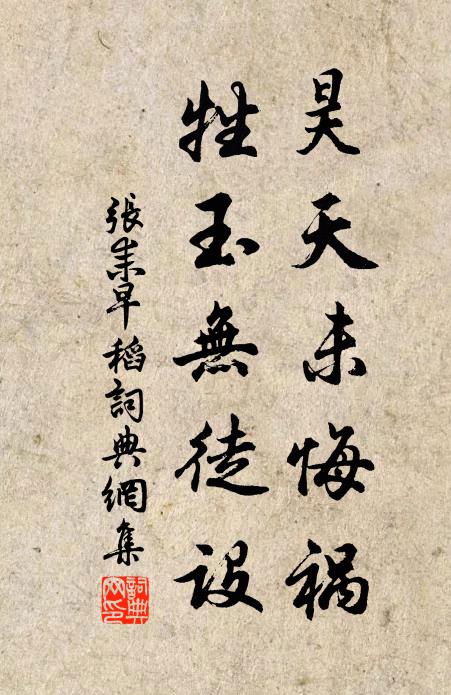 昊天未悔禍
牲玉無徒設
張耒早稻詞典網集
詞典网印